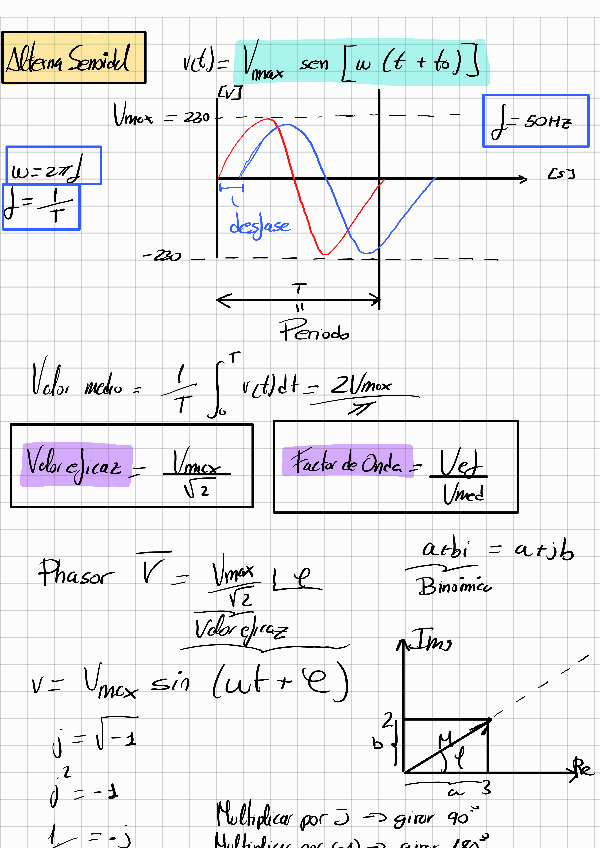 Alterna Senoidal
v(t) = Vmax sen [w (t + to)]
[V]
Vmax = 230
f = 50Hz
w = 2πf
[s]
f = 1/T
desfase
-230
T
=
Periodo
Valor medio = 1/T ∫₀ᵀ v(t) dt = 2Vmax/π
Valor eficaz = Vmax/√2
Factor de Onda = Vef/Vmed
a+bi = a+jb
Binómica
Phasor V̅ = Vmax/√2 ∟φ
Valor eficaz
Img
v = Vmax sin (wt + φ)
2
b
M
φ
j = √-1
Re
a 3
j² = -1
Multiplicar por j -> girar 90°
1 = -j
Multiplicar por (-1) -> girar 180°